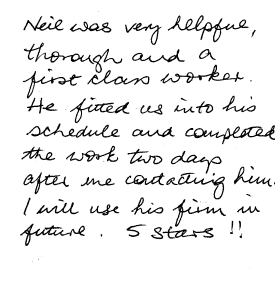 Neil was very helpful,
thorough and a
first class worker.
He fitted us into his
schedule and completed
the work two days
after me contacting him.
I will use his firm in
future. 5 stars !!